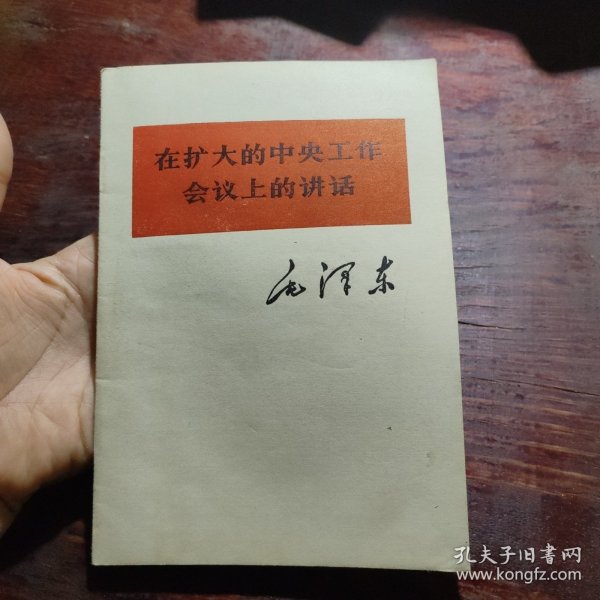 在扩大的中央工作
会议上的讲话
毛泽东
孔夫子旧书网
www.kongfz.com